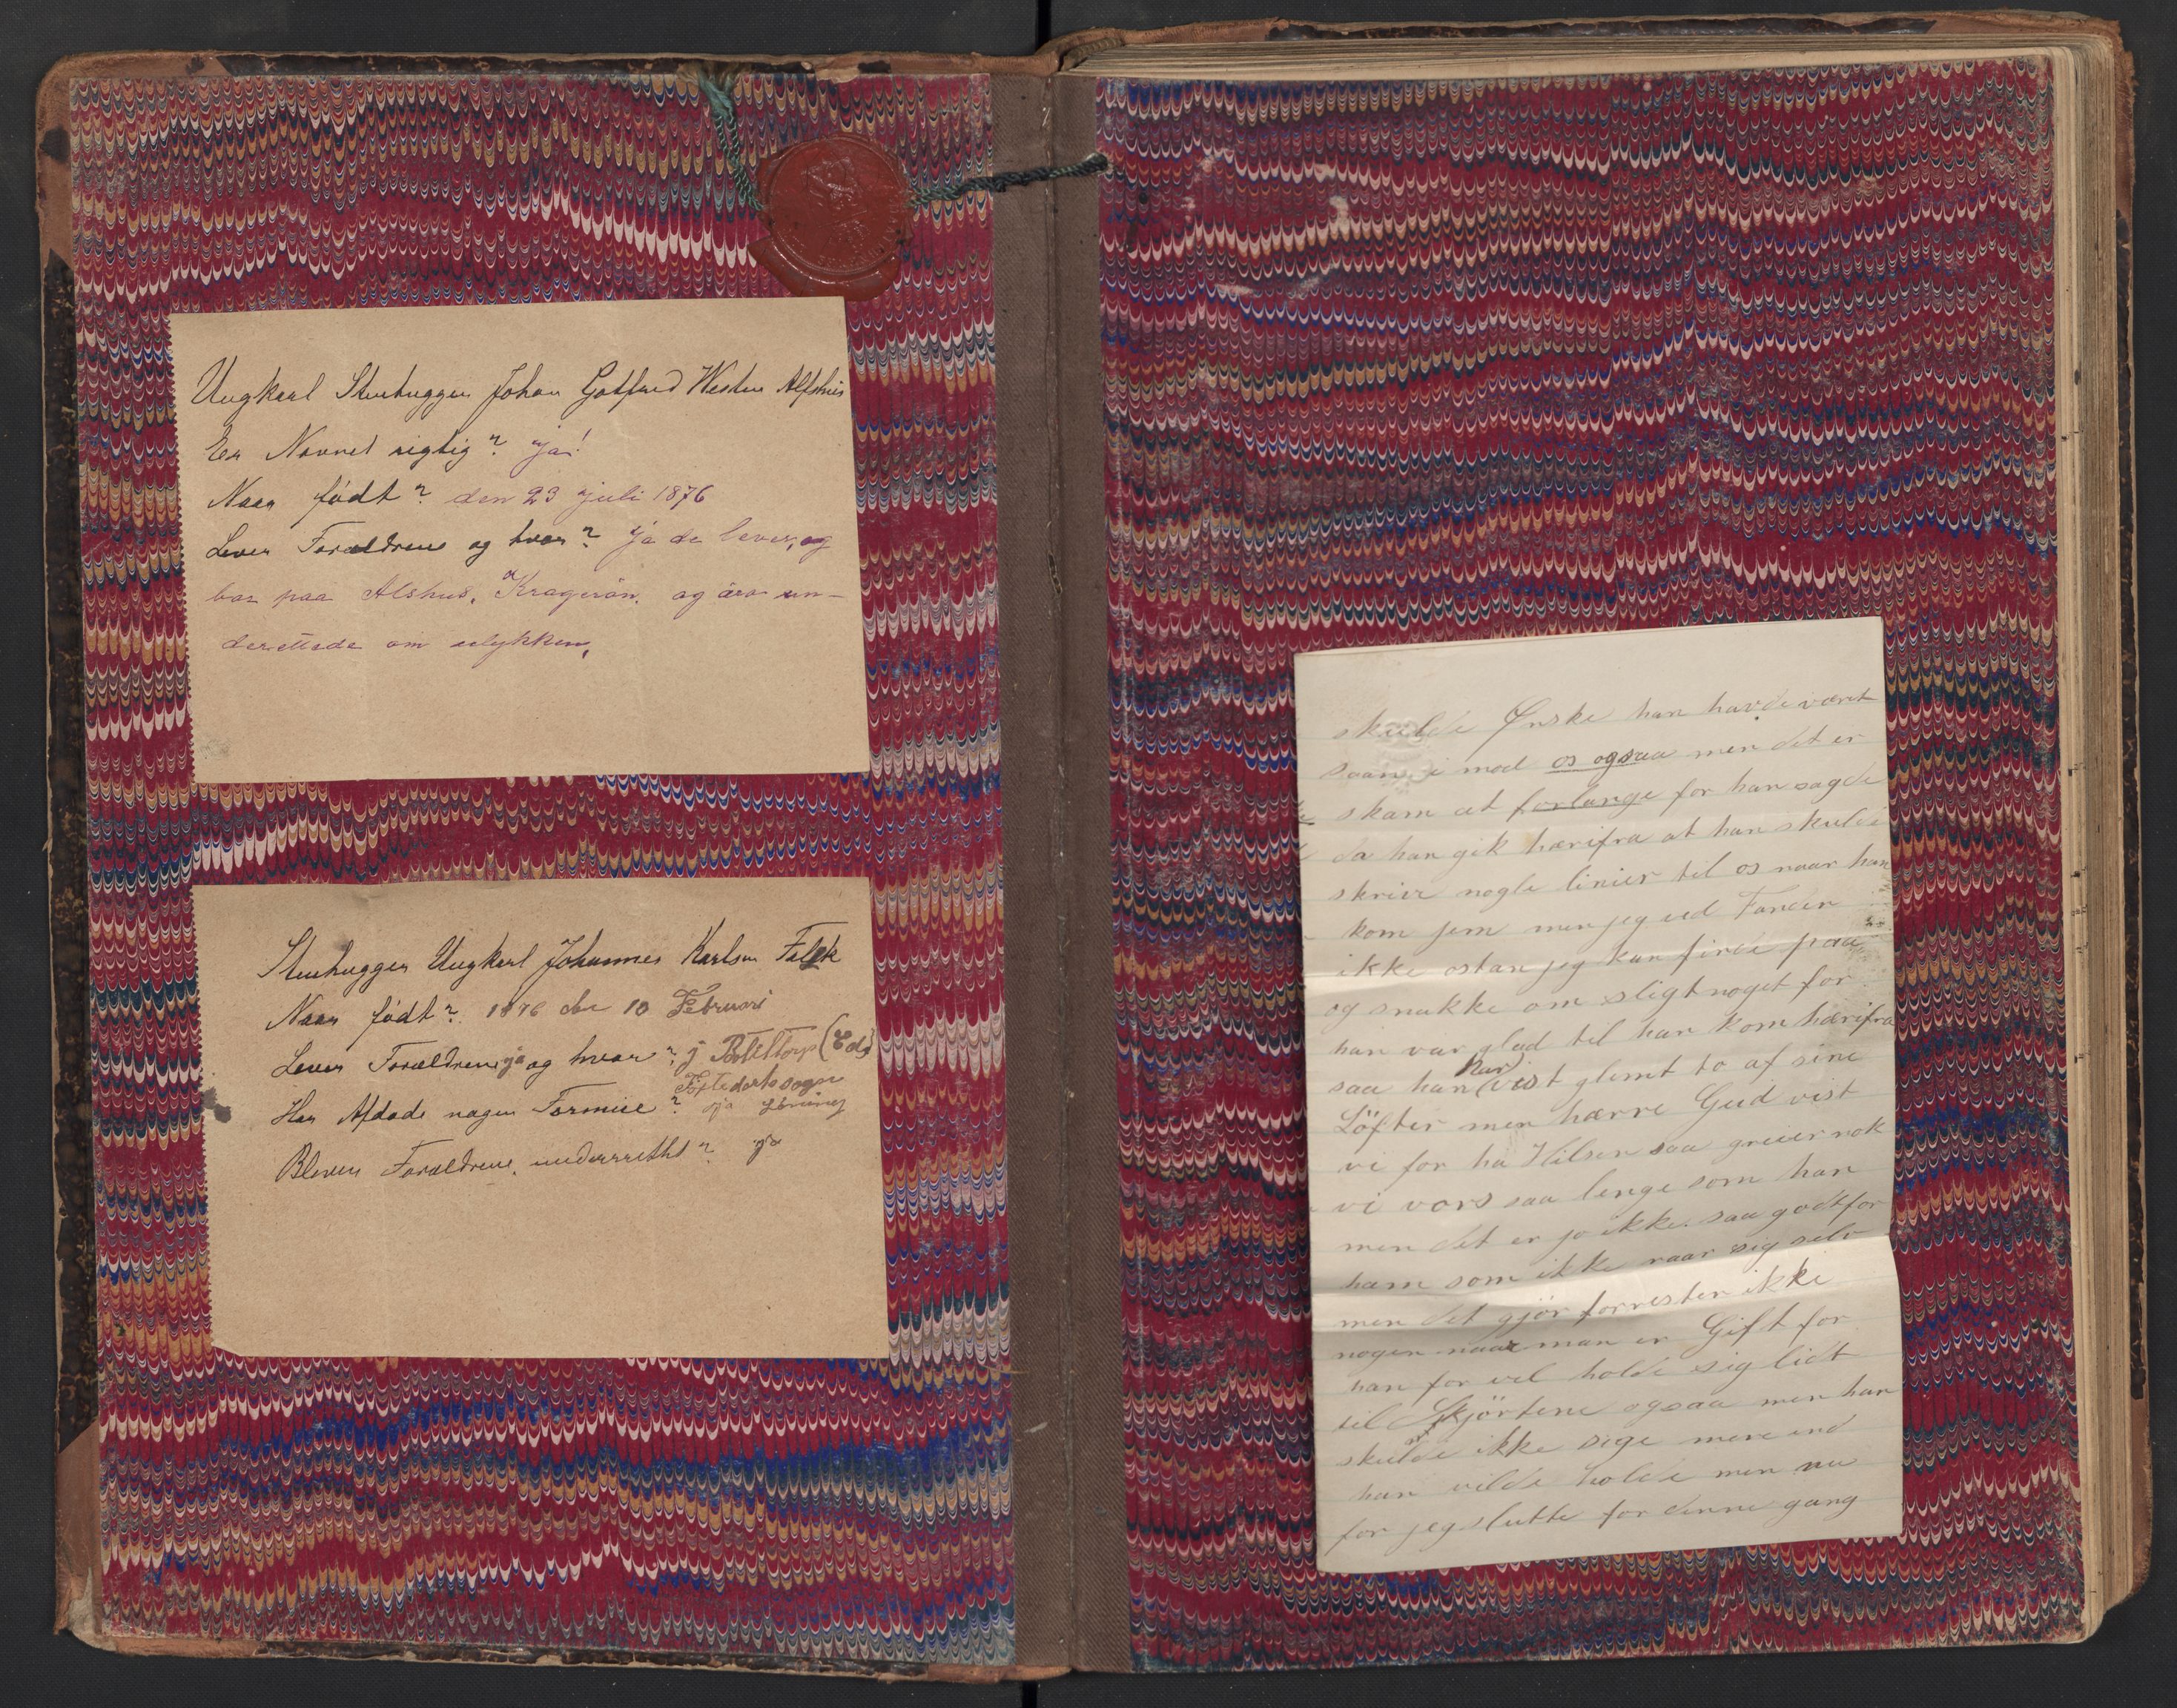 Ungkarl Stenhugger Johan Gotfred Westen Alfshus
Er Navnet rigtig? ja!
Naar født? den 23 juli 1876
Lever Forældrene og hvor? ja de lever, og
bor paa Alshus, Kragerön. og æra un-
derettede om ulykken,
Stenhugger Ungkarl Johannes Karlson Falck
Naar født? 1876 den 10 Februari
Lever Forældrene ja og hvor? j (Ed)
sogn
Har Afdøde nogen Formue? ja
Bleven Forældrene underrettet? ja
skulde Ønske han havde været
saan i mod os ogsaa men det er
skam at forlange for han sagde
da han gik hærifra at han skulde
skrive nogle linier til os naar han
kom jem men jeg ved Fanden
ikke ostan jeg kan finde paa
og snakke om sligt noget for
han var glad til han kom hærifra
saa han (har) vist glemt to af sine
Löfter men hærre Gud vist
vi for ha Hilsen saa greier nok
vi vors saa lenge som han
men det er jo ikke saa godt for
ham som ikke raar sig selv
men det gjör forresten ikke
nogen naar man er Gift for
han for vel holde sig lidt
til Skjörtene ogsaa men han
skulde ikke sige mere end
han vilde holde men nu
for jeg slutte for denne gang